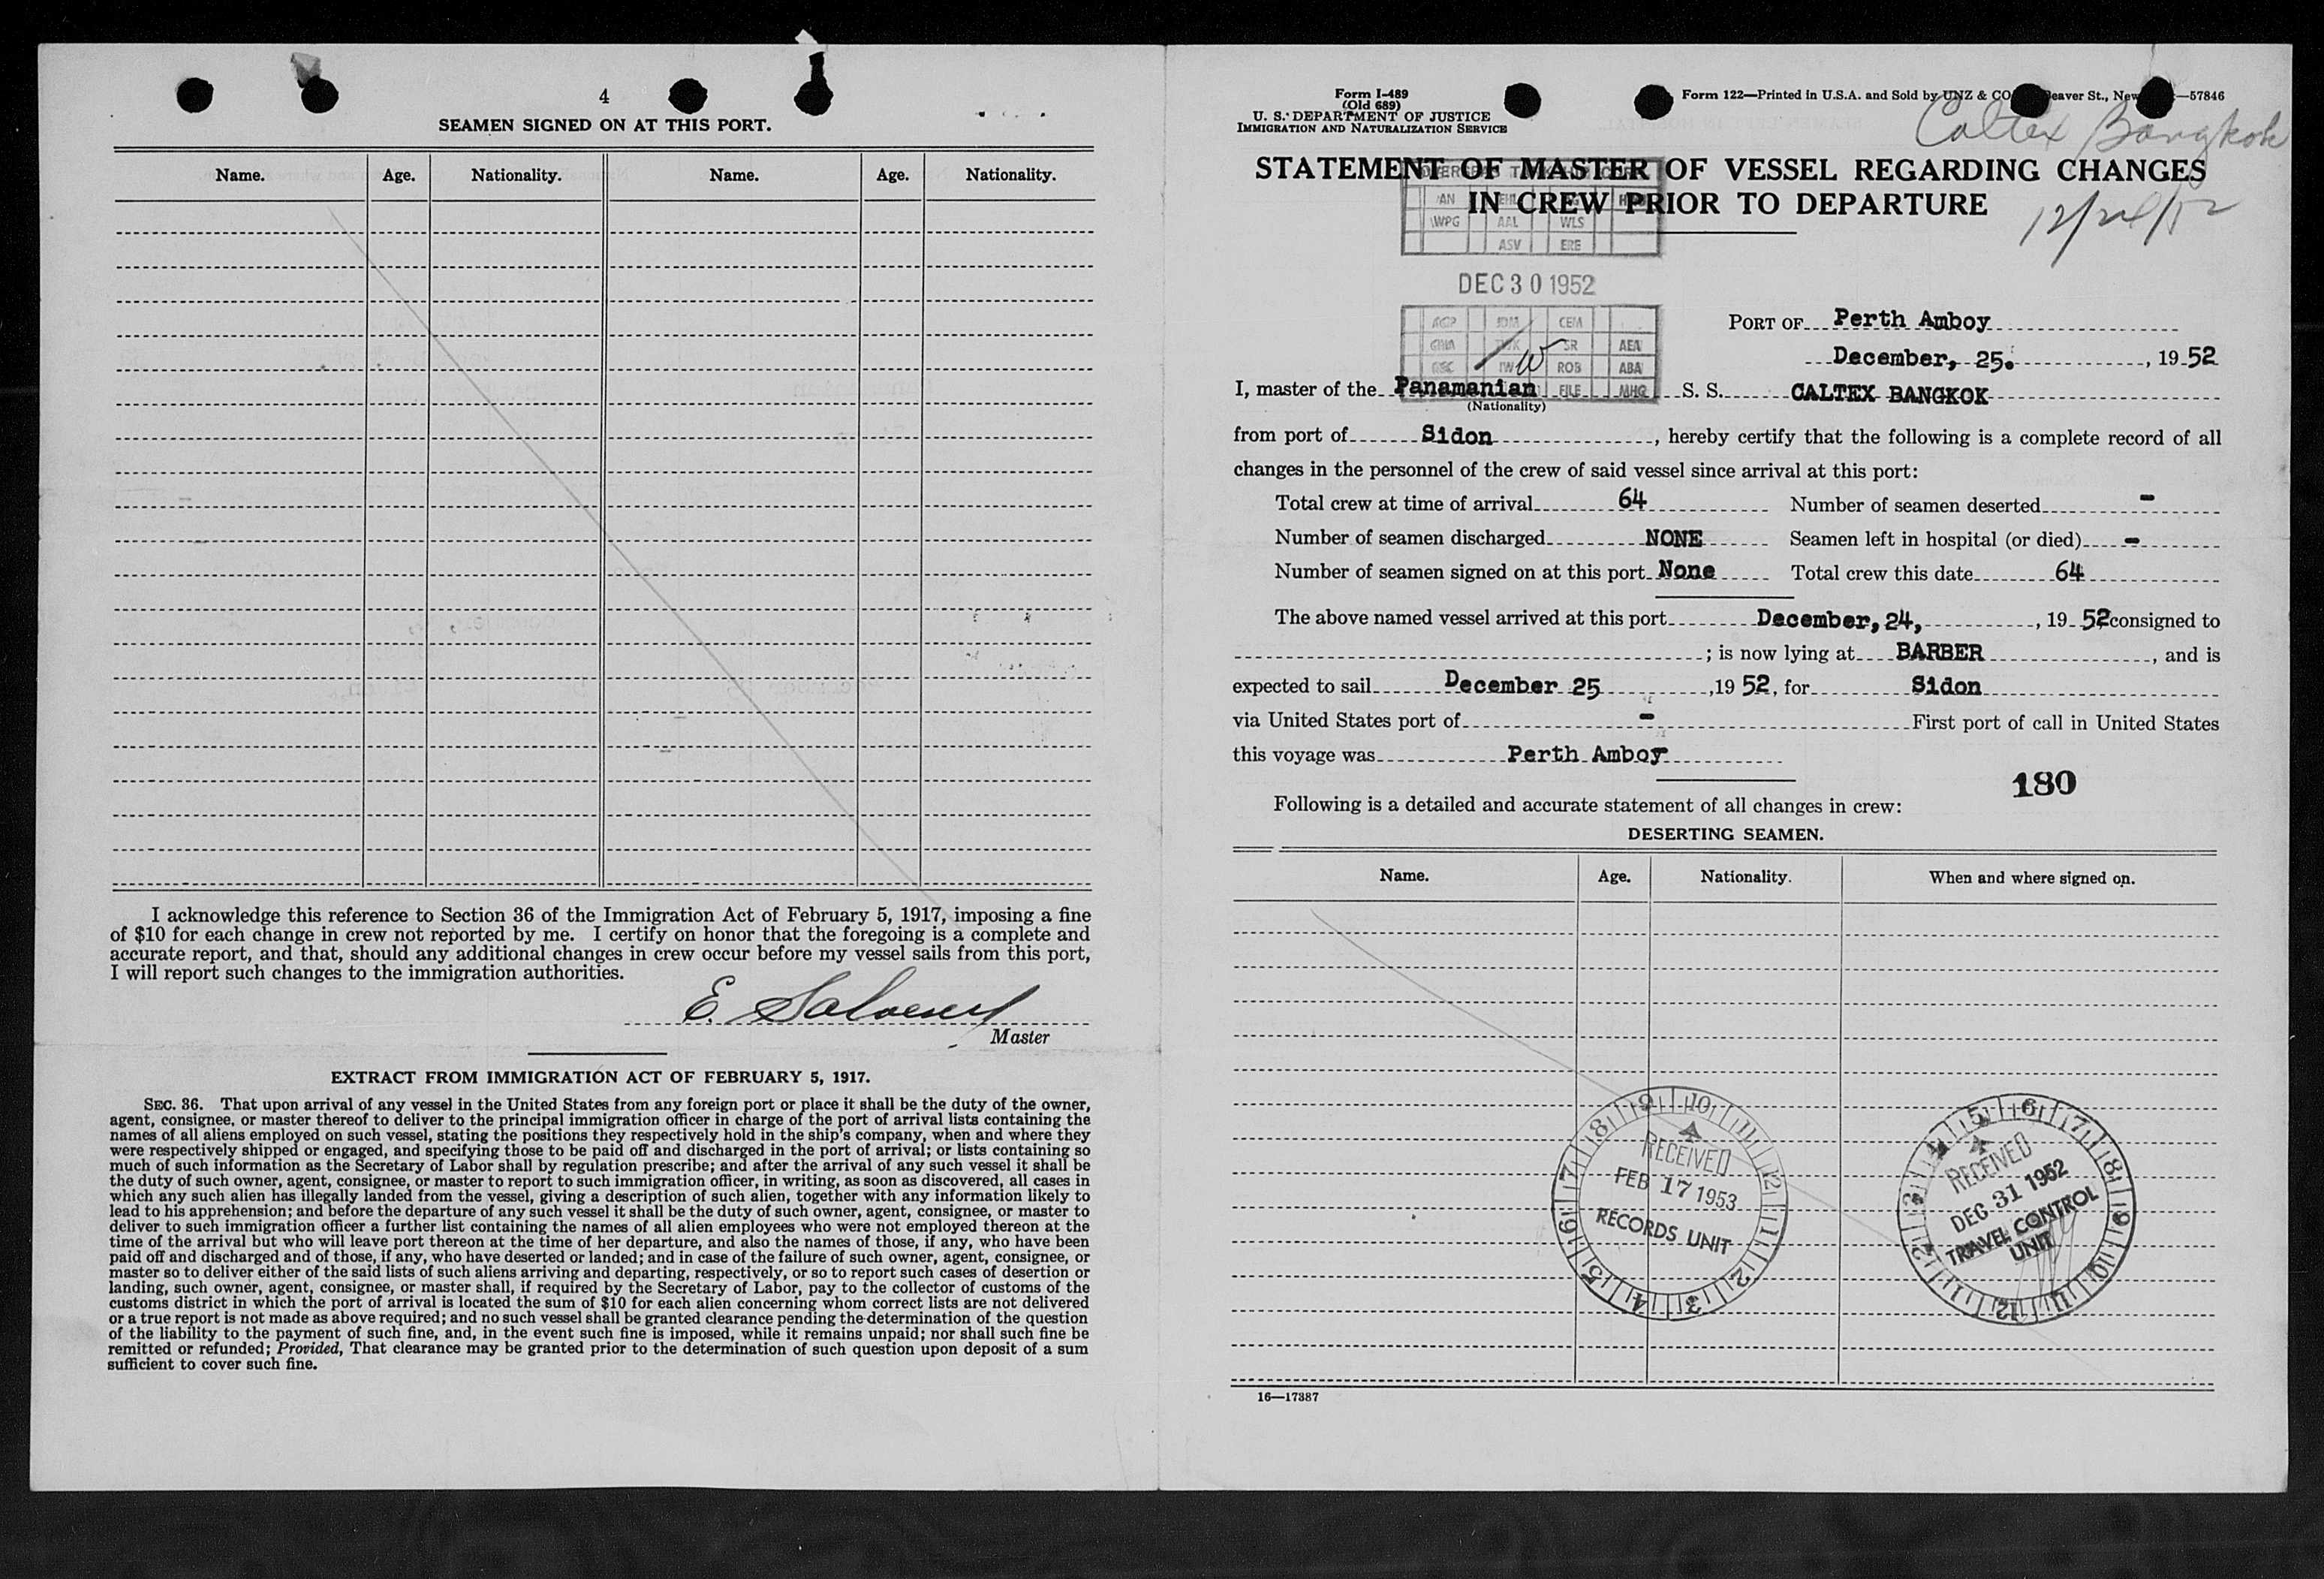 4
SEAMEN SIGNED ON AT THIS PORT.
Name. Age. Nationality. Name. Age. Nationality.
I acknowledge this reference to Section 36 of the Immigration Act of February 5, 1917, imposing a fine
of $10 for each change in crew not reported by me. I certify on honor that the foregoing is a complete and
accurate report, and that, should any additional changes in crew occur before my vessel sails from this port,
I will report such changes to the immigration authorities.
E. Salvesen
Master
EXTRACT FROM IMMIGRATION ACT OF FEBRUARY 5, 1917.
SEC. 36. That upon arrival of any vessel in the United States from any foreign port or place it shall be the duty of the owner,
agent, consignee, or master thereof to deliver to the principal immigration officer in charge of the port of arrival lists containing the
names of all aliens employed on such vessel, stating the positions they respectively hold in the ship's company, when and where they
were respectively shipped or engaged, and specifying those to be paid off and discharged in the port of arrival; or lists containing so
much of such information as the Secretary of Labor shall by regulation prescribe; and after the arrival of any such vessel it shall be
the duty of such owner, agent, consignee, or master to report to such immigration officer, in writing, as soon as discovered, all cases in
which any such alien has illegally landed from the vessel, giving a description of such alien, together with any information likely to
lead to his apprehension; and before the departure of any such vessel it shall be the duty of such owner, agent, consignee, or master to
deliver to such immigration officer a further list containing the names of all alien employees who were not employed thereon at the
time of the arrival but who will leave port thereon at the time of her departure, and also the names of those, if any, who have been
paid off and discharged and of those, if any, who have deserted or landed; and in case of the failure of such owner, agent, consignee, or
master so to deliver either of the said lists of such aliens arriving and departing, respectively, or so to report such cases of desertion or
landing, such owner, agent, consignee, or master shall, if required by the Secretary of Labor, pay to the collector of customs of the
customs district in which the port of arrival is located the sum of $10 for each alien concerning whom correct lists are not delivered
or a true report is not made as above required; and no such vessel shall be granted clearance pending the determination of the question
of the liability to the payment of such fine, and, in the event such fine is imposed, while it remains unpaid; nor shall such fine be
remitted or refunded; Provided, That clearance may be granted prior to the determination of such question upon deposit of a sum
sufficient to cover such fine.
Form I-489
(Old 689)
U. S. DEPARTMENT OF JUSTICE
IMMIGRATION AND NATURALIZATION SERVICE
Form 122—Printed in U.S.A. and Sold by UNZ & CO eaver St., New —57846
Caltex Bangkok
STATEMENT OF MASTER OF VESSEL REGARDING CHANGES
IN CREW PRIOR TO DEPARTURE
12/24/52
AN
WPG AAL WLS
ASV ERE
DEC 30 1952
AGP JDM CEM
SR AEA
IW ROB ABA
FILE MHG
PORT OF Perth Amboy
December, 25. , 19 52
I, master of the Panamanian S. S. CALTEX BANGKOK
(Nationality)
from port of Sidon , hereby certify that the following is a complete record of all
changes in the personnel of the crew of said vessel since arrival at this port:
Total crew at time of arrival 64 Number of seamen deserted -
Number of seamen discharged NONE Seamen left in hospital (or died) -
Number of seamen signed on at this port None Total crew this date 64
The above named vessel arrived at this port December, 24, , 19 52 consigned to
; is now lying at BARBER , and is
expected to sail December 25 , 19 52, for Sidon
via United States port of - First port of call in United States
this voyage was Perth Amboy
180
Following is a detailed and accurate statement of all changes in crew:
DESERTING SEAMEN.
Name. Age. Nationality. When and where signed on.
RECEIVED
FEB 17 1953
RECORDS UNIT
RECEIVED
DEC 31 1952
TRAVEL CONTROL
UNIT
16—17387